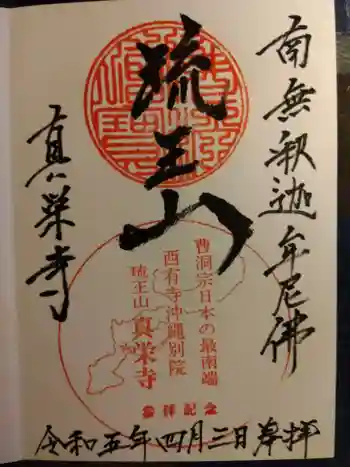 南無釈迦牟尼佛
琉王山
真栄寺
曹洞宗日本の最南端
西有寺沖縄別院
琉王山 真栄寺
参拝記念
令和五年四月三日奉拝